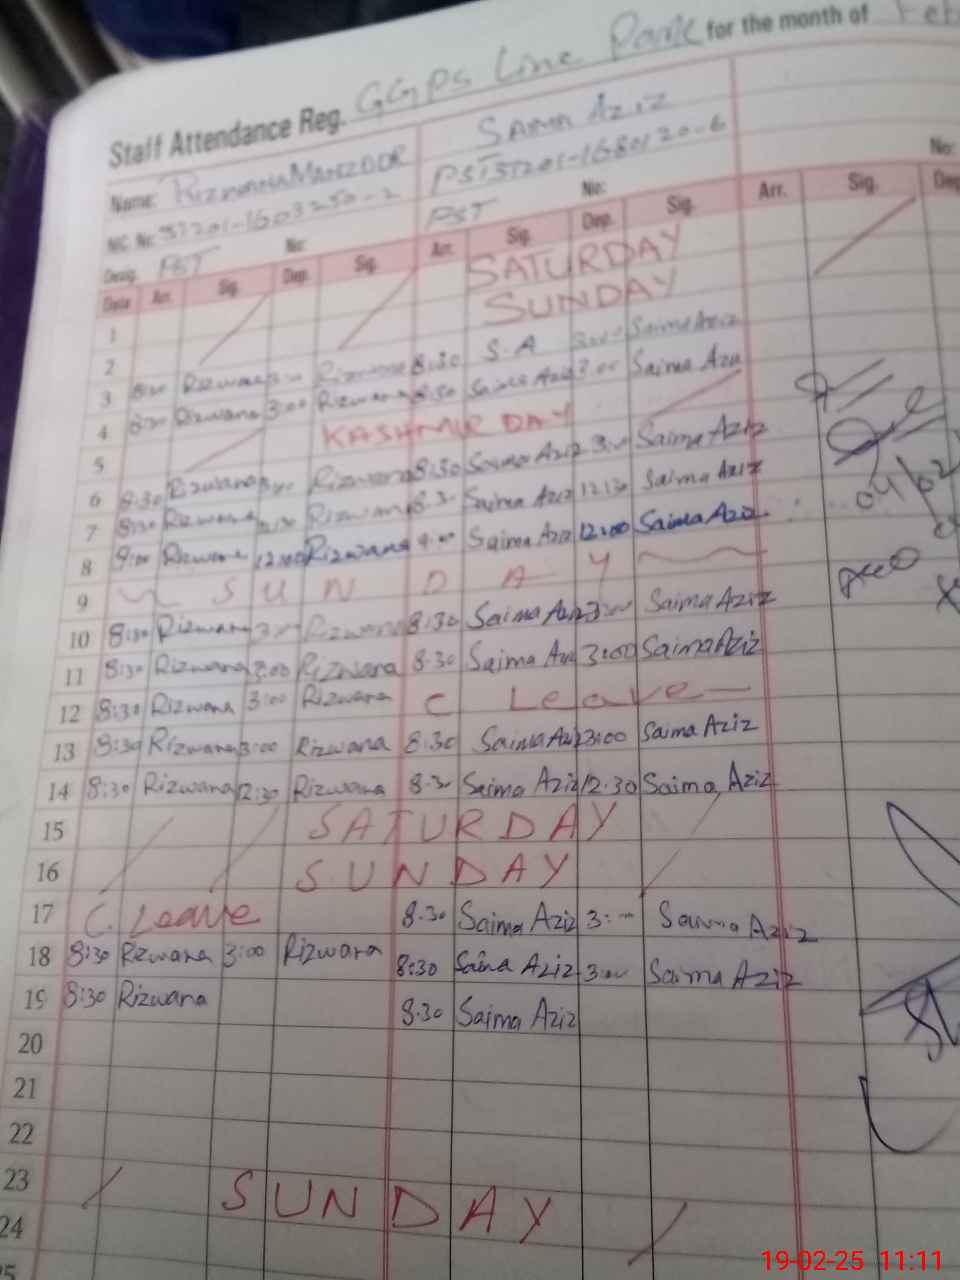 Staff Attendance Reg. GGPS Line Park for the month of Feb
Name: Rizwana Manzoor SAIMA AZIZ
NIC No: 37201-1603250-2 PST 37201-1680120-6
Desig. PST No: PST No: No:
Date Arr. Sig. Dep. Sig. Arr. Sig. Dep. Sig. Arr. Sig. Dep
1 SATURDAY
2 SUNDAY
3 8:30 Rizwana 3:00 Rizwana 8:30 S.A 3:00 Saima Aziz
4 8:30 Rizwana 3:00 Rizwana 8:30 Saima Aziz 3:00 Saima Aziz
5 KASHMIR DAY
6 8:30 Rizwana 3:00 Rizwana 8:30 Saima Aziz 3:00 Saima Aziz
7 8:30 Rizwana 12:30 Rizwana 8:30 Saima Aziz 12:30 Saima Aziz
8 9:00 Rizwana 12:00 Rizwana 9:00 Saima Aziz 12:00 Saima Aziz
04/02
9 SUNDAY
10 8:30 Rizwana 3:00 Rizwana 8:30 Saima Aziz 3:00 Saima Aziz
11 8:30 Rizwana 3:00 Rizwana 8:30 Saima Aziz 3:00 Saima Aziz
12 8:30 Rizwana 3:00 Rizwana C Leave
13 8:30 Rizwana 3:00 Rizwana 8:30 Saima Aziz 3:00 Saima Aziz
14 8:30 Rizwana 12:30 Rizwana 8:30 Saima Aziz 12:30 Saima Aziz
15 SATURDAY
16 SUNDAY
17 C. Leave 8:30 Saima Aziz 3:00 Saima Aziz
18 8:30 Rizwana 3:00 Rizwana 8:30 Saima Aziz 3:00 Saima Aziz
19 8:30 Rizwana 8:30 Saima Aziz
20
21
22
23 SUNDAY
24
19-02-25 11:11